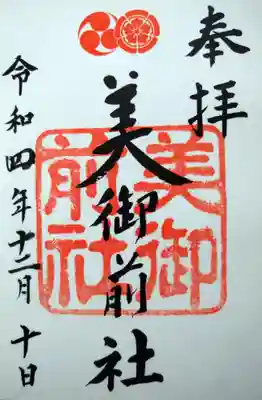 奉拝
美御前社
美御
前社
令和四年十二月十日